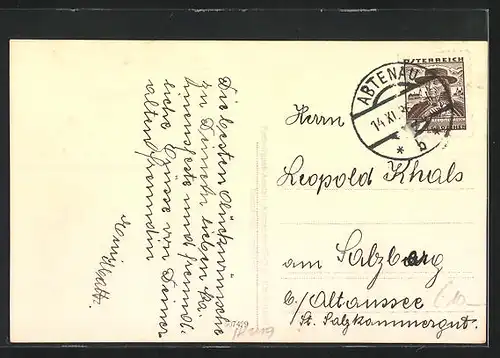 Die besten Glückwünsche
zu Deinem lieben Na-
mensfeste und freund-
liche Grüsse von Deiner
alten Freundin
ÖSTERREICH
ABTENAU
14.XI.3
* b *
Herrn
Leopold Khals
am Salzberg
b/Altaussee
St. Salzkammergut.